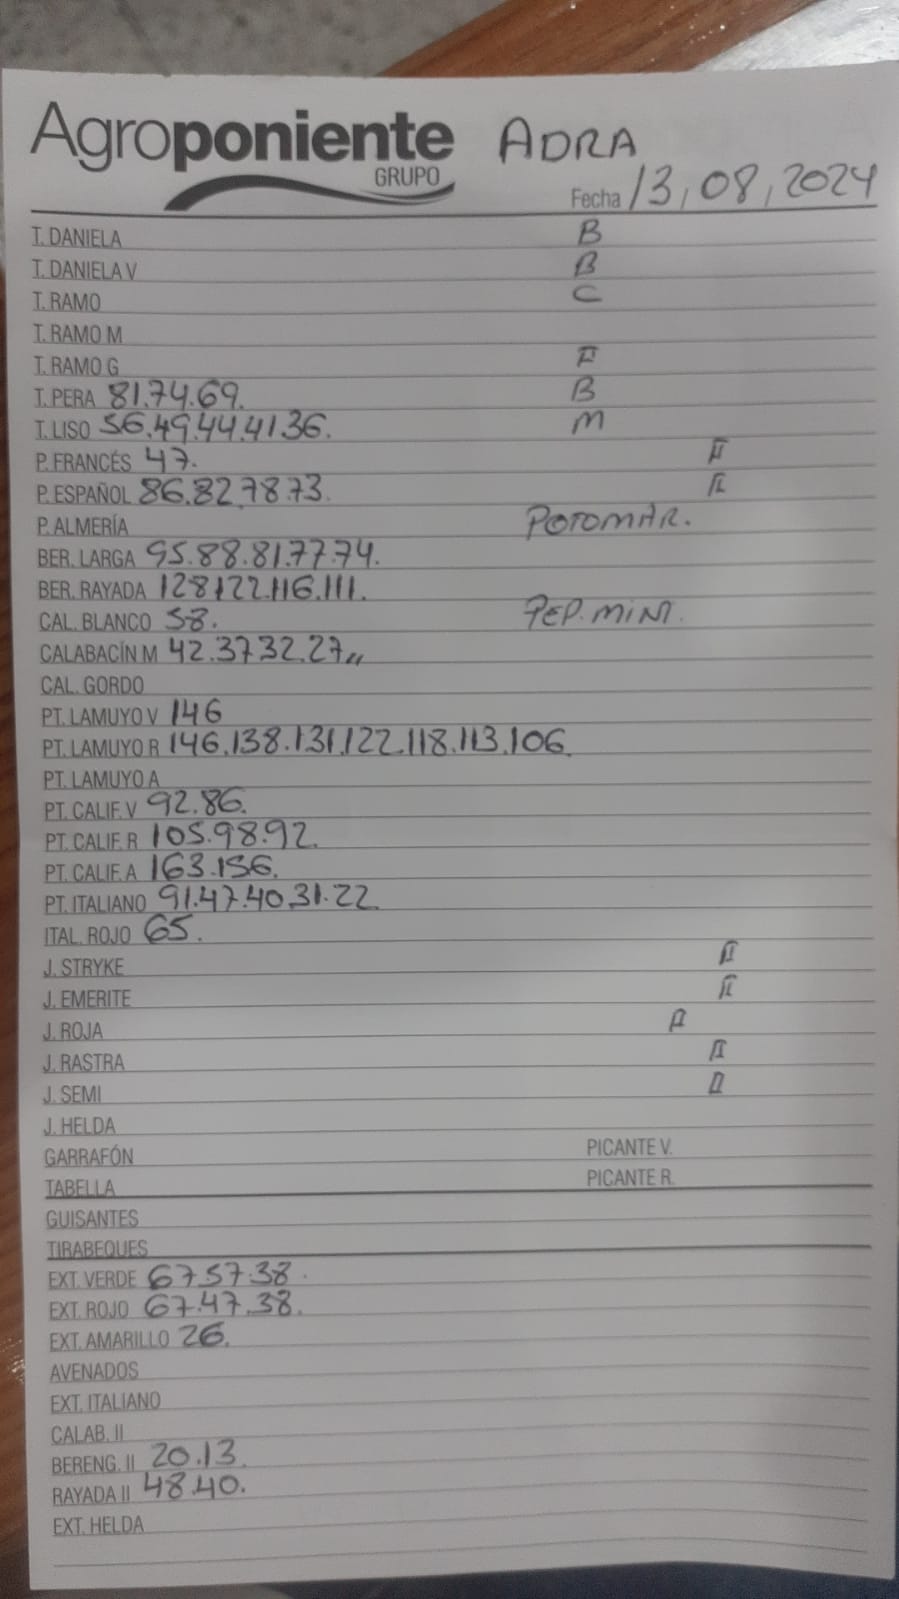 Agroponiente ADRA
GRUPO
Fecha 13,08,2024
T. DANIELA B
T. DANIELA V B
T. RAMO C
T. RAMO M
T. RAMO G
T. PERA 81.74.69. B
T. LISO 56.49.44.41.36. M
P. FRANCÉS 47.
P. ESPAÑOL 86.82.78.73.
P. ALMERÍA POTOMAR.
BER. LARGA 95.88.81.77.74.
BER. RAYADA 128.122.116.111.
CAL. BLANCO 58. PEP. MINI.
CALABACÍN M 42.37.32.27,,
CAL. GORDO
PT. LAMUYO V 146
PT. LAMUYO R 146.138.131.122.118.113.106.
PT. LAMUYO A
PT. CALIF. V 92.86.
PT. CALIF. R 105.98.92.
PT. CALIF. A 163.156.
PT. ITALIANO 91.47.40.31.22.
ITAL. ROJO 65.
J. STRYKE
J. EMERITE
J. ROJA
J. RASTRA
J. SEMI
J. HELDA
GARRAFÓN PICANTE V.
TABELLA PICANTE R.
GUISANTES
TIRABEQUES
EXT. VERDE 67.57.38.
EXT. ROJO 67.47.38.
EXT. AMARILLO 26.
AVENADOS
EXT. ITALIANO
CALAB. II
BERENG. II 20.13.
RAYADA II 48.40.
EXT. HELDA